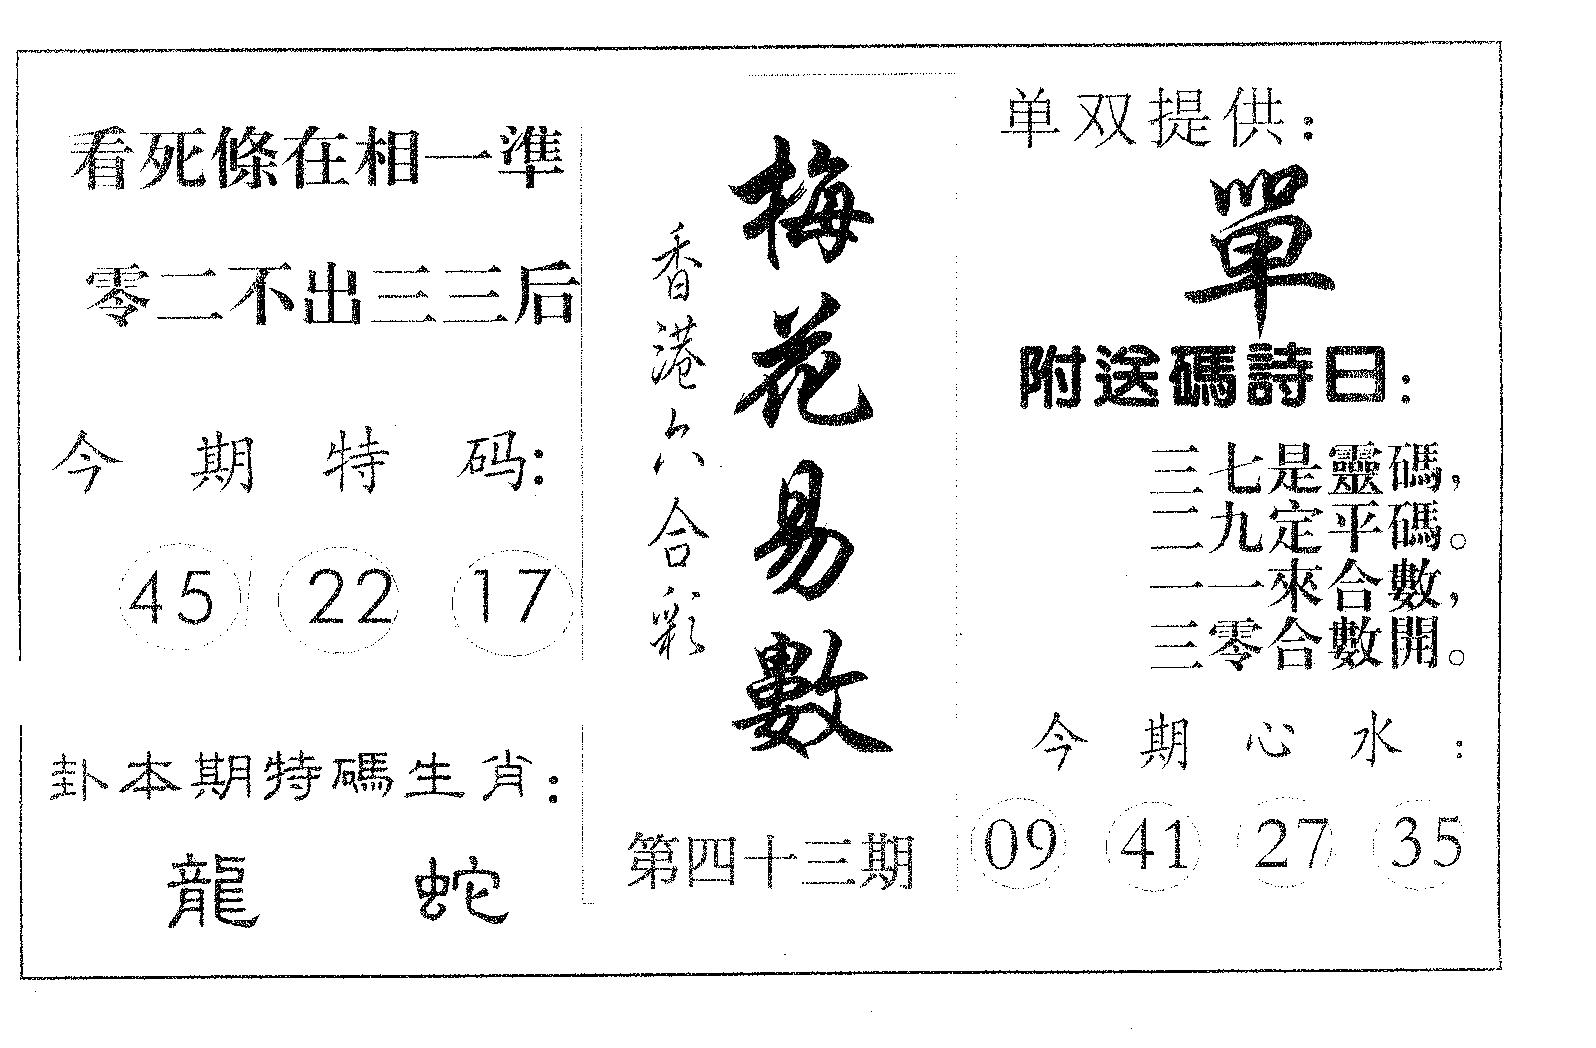 看死條在相一準
零二不出三三后
今期特码:
45 22 17
卦本期特碼生肖:
龍 蛇
香港六合彩
梅花易數
第四十三期
单双提供:
單
附送碼詩曰:
三七是靈碼,
二九定平碼。
一一來合數,
三零合數開。
今期心水:
09 41 27 35